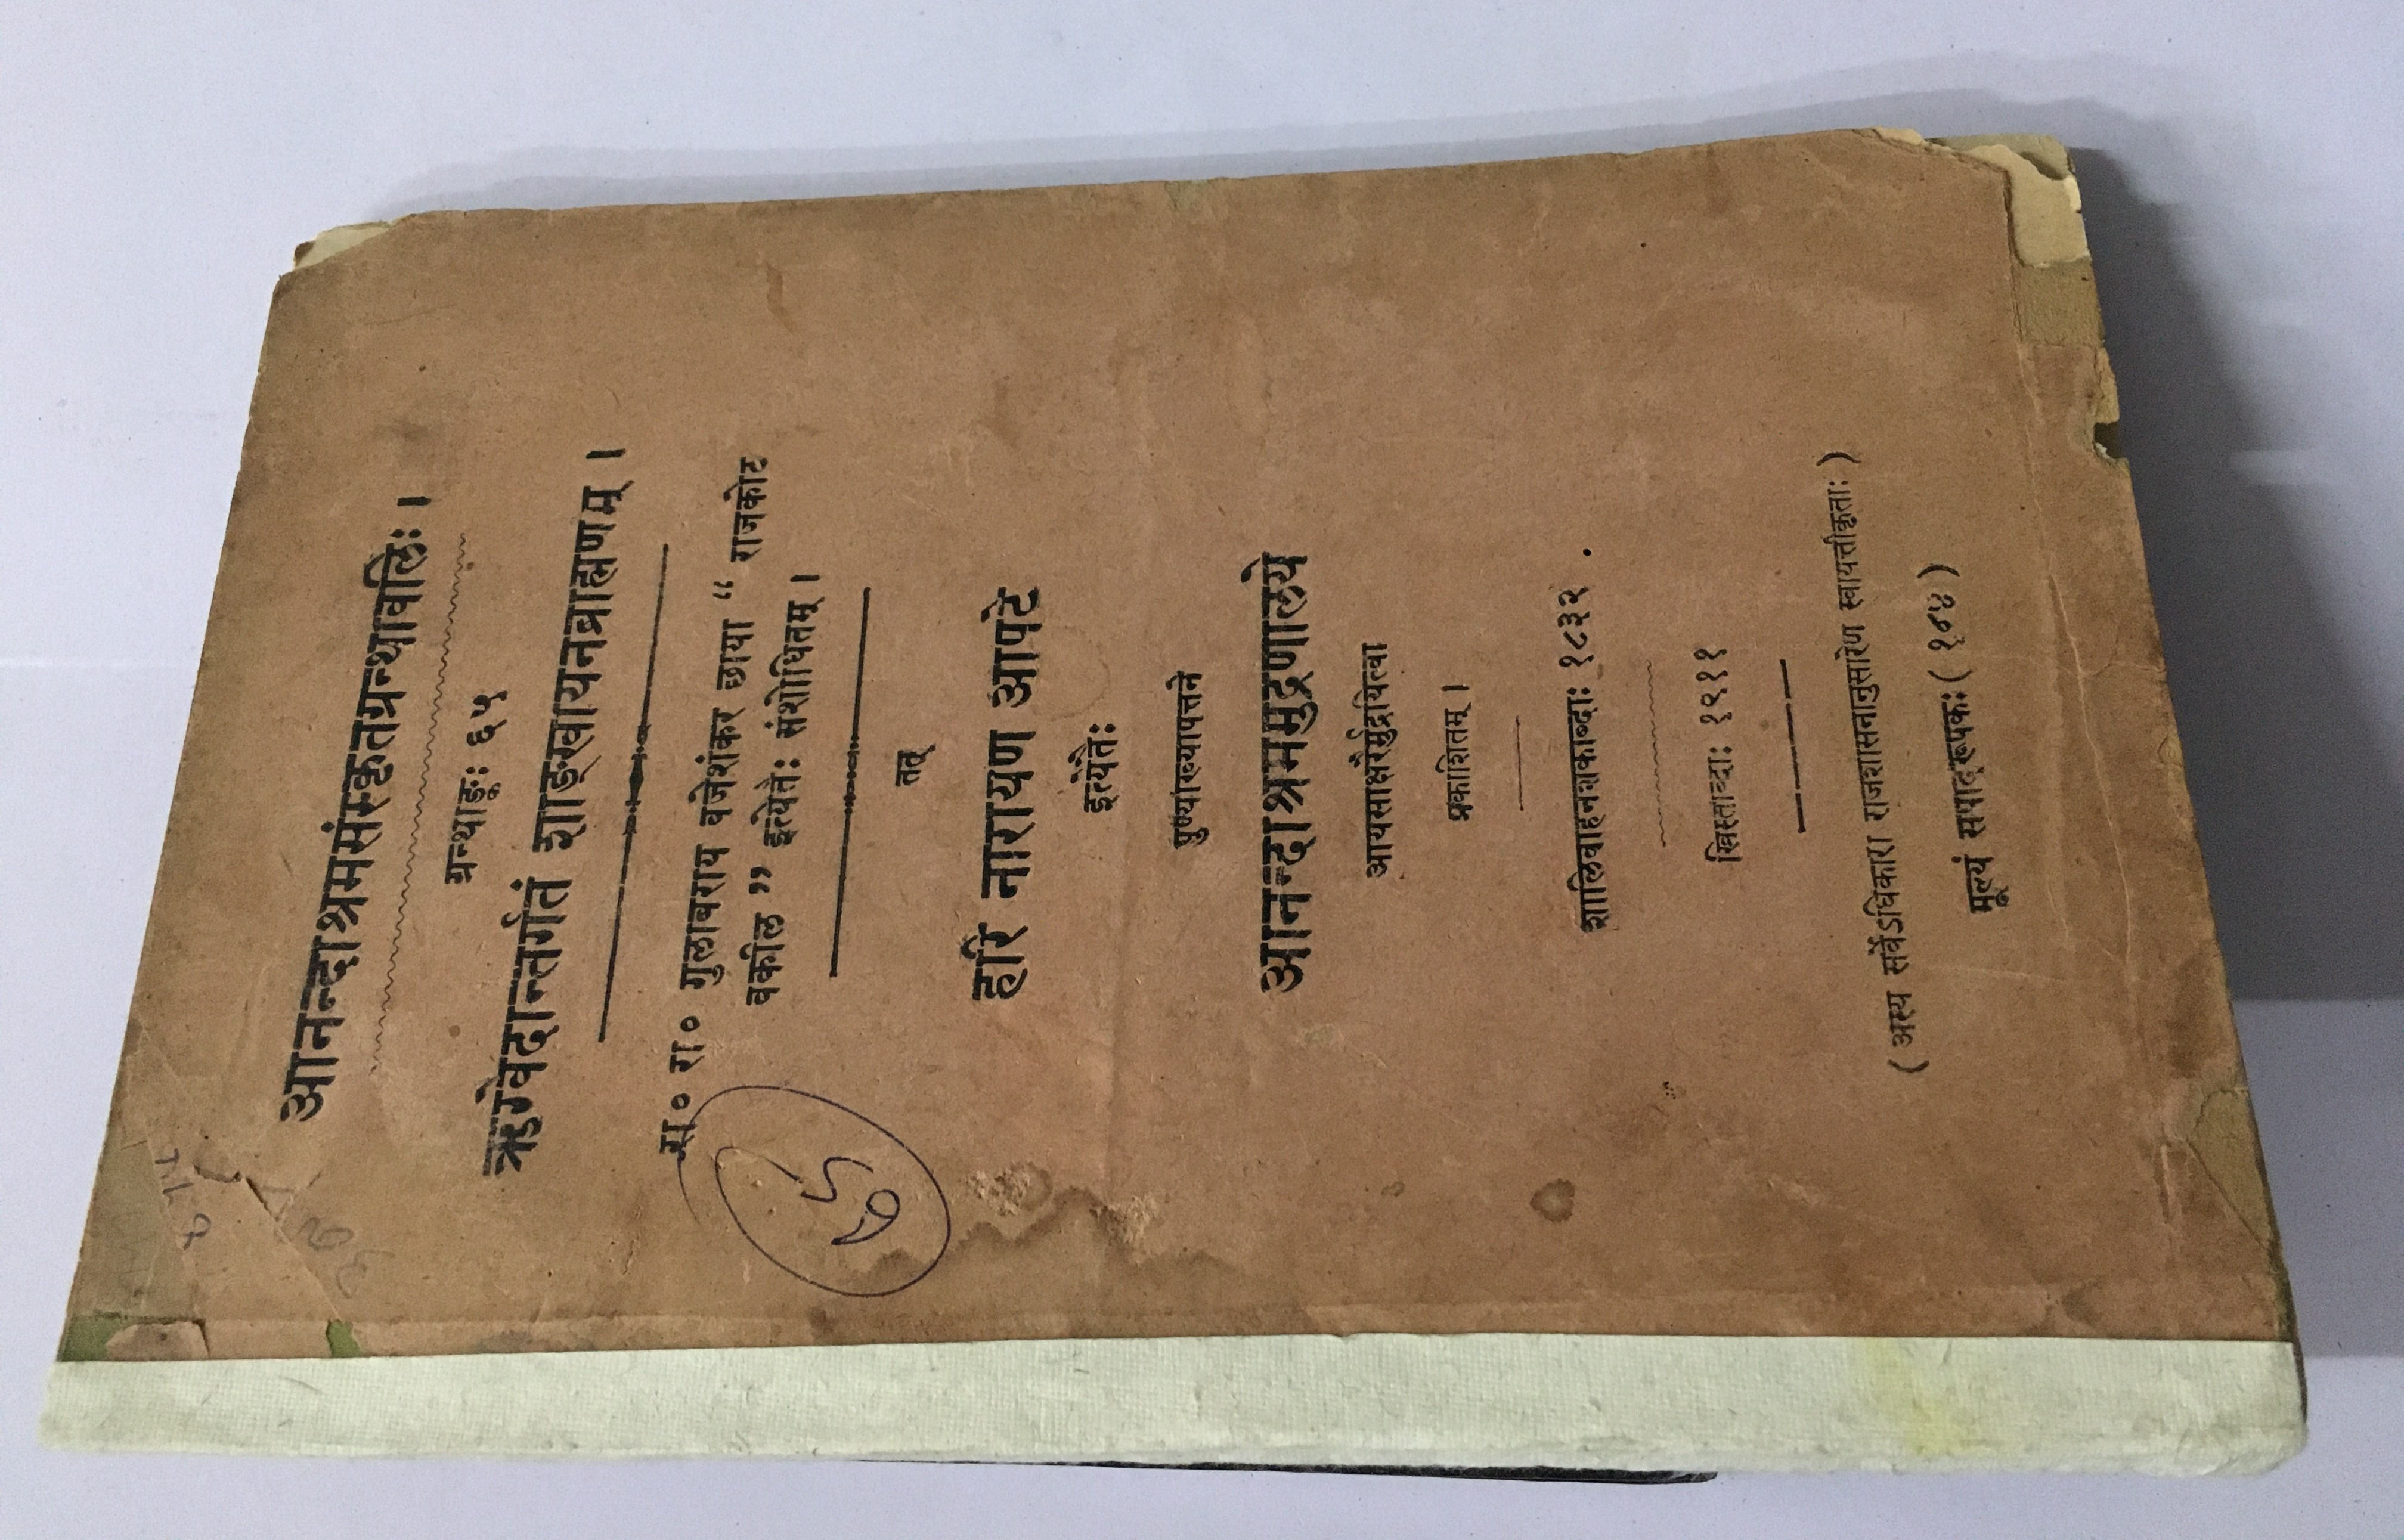 आनन्दाश्रमसंस्कृतग्रन्थावलिः ।
ग्रन्थाङ्कः ६५
ऋग्वेदान्तर्गतं शाङ्खायनब्राह्मणम् ।
रा० रा० गुलाबराय वजेशंकर छाया “ राजकोट
वकील ” इत्येतैः संशोधितम् ।
तत्
हरि नारायण आपटे
इत्येतैः
पुण्याख्यपत्तने
आनन्दाश्रममुद्रणालये
आयसाक्षरैर्मुद्रयित्वा
प्रकाशितम् ।
शालिवाहनशकाब्दाः १८३२
ख्रिस्ताब्दाः १९११
( अस्य सर्वेऽधिकारा राजशासनानुसारेण स्वायत्तीकृताः )
मूल्यं सपादरूपकः